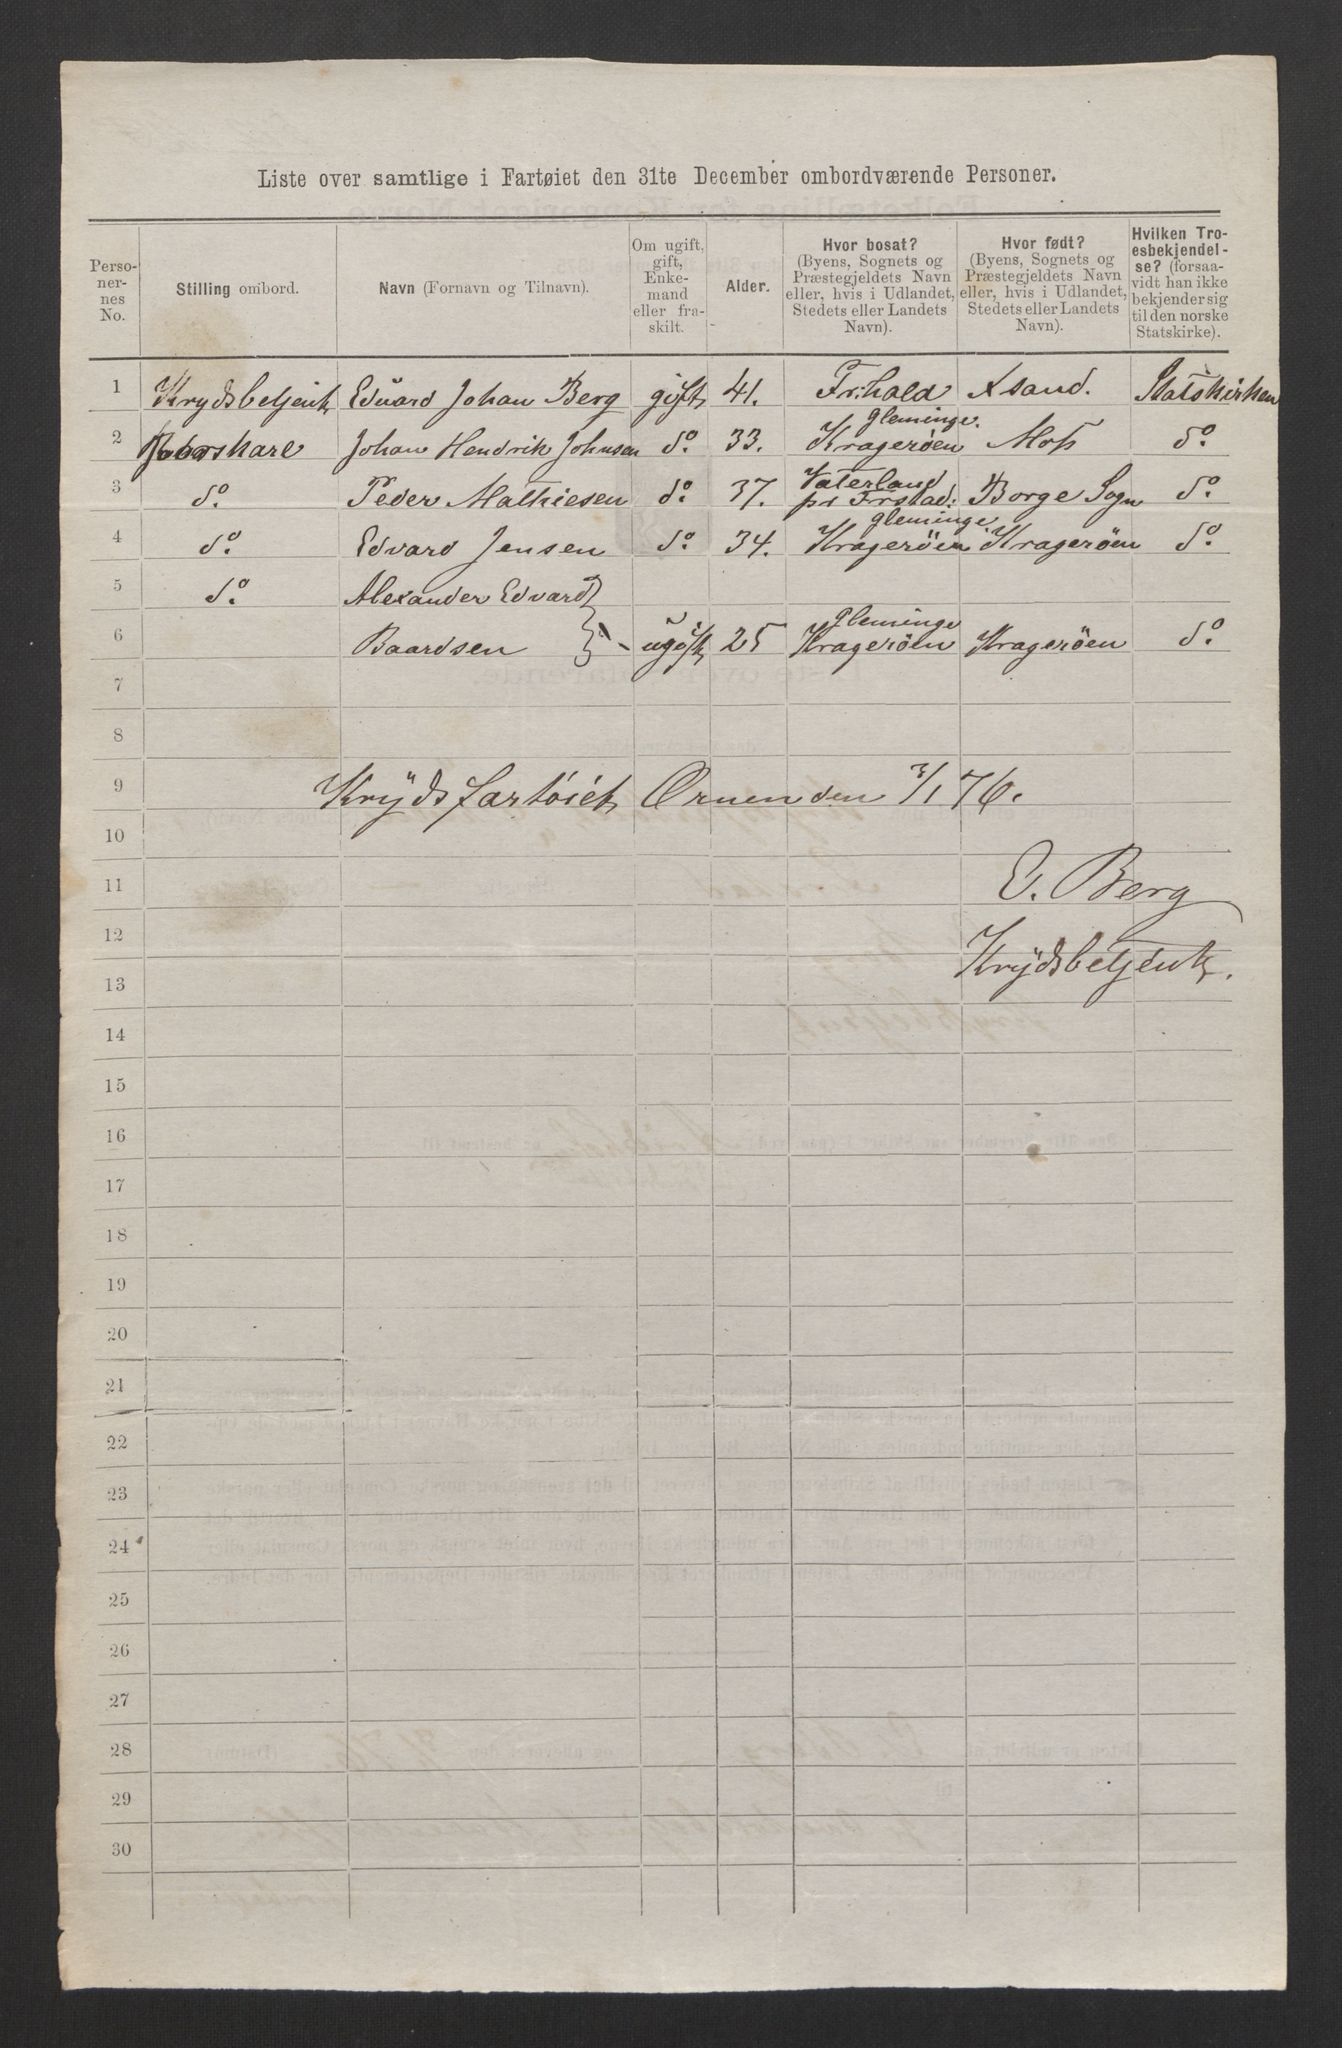 Liste over samtlige i Fartøiet den 31te December ombordværende Personer.
Perso-
ner-
nes
No.
Stilling ombord.
Navn (Fornavn og Tilnavn).
Om ugift,
gift,
Enke-
mand
eller fra-
skilt.
Alder.
Hvor bosat?
(Byens, Sognets og
Præstegjeldets Navn
eller, hvis i Udlandet,
Stedets eller Landets
Navn).
Hvor født?
(Byens, Sognets og
Præstegjeldets Navn
eller, hvis i Udlandet,
Stedets eller Landets
Navn).
Hvilken Tro-
esbekjendel-
se? (forsaa-
vidt han ikke
bekjender sig
til den norske
Statskirke).
1 Krydsbetjent Edvard Johan Berg gift 41. Fr:hald Asand. Statskirken
Gleminge.
2 Johan Hendrik Johnsen do. 33. Kragerøen Moss do.
Vaterland
3 do. Peder Mathiesen do. 37. pr Frstad: Borge Sogn do.
Gleminge.
4 do. Edvard Jensen do. 34. Kragerøen Kragerøen do.
5 do. Alexander Edvard
Gleminge
6 Baardsen ugift 25 Kragerøen Kragerøen do.
7
8
9 Krydsfartøiet Ørnen den 3/1 76.
10
11 E. Berg
12
Krydsbetjent.
13
14
15
16
17
18
19
20
21
22
23
24
25
26
27
28
29
30